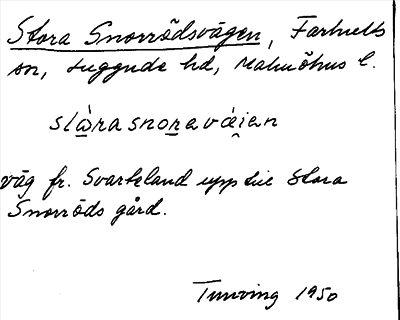 Stora Snorrödsvägen, Farhults
sn, Luggude hd, Malmöhus l.
stàrasnoreváien
väg fr. Svarteland upp till Stora
Snorröds gård.
Tunving 1950